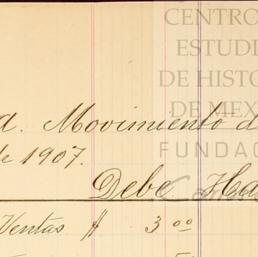 CENTRO
ESTUDI
DE HISTO
DE MEX
FUNDAC
a. Movimiento d
de 1907.
Debe Ha
Ventas $ 3 00